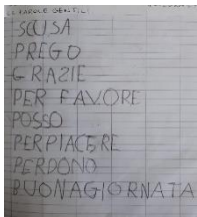 LE PAROLE GENTILI
SCUSA
PREGO
GRAZIE
PER FAVORE
POSSO
PERPIACERE
PERDONO
BUONAGIORNATA